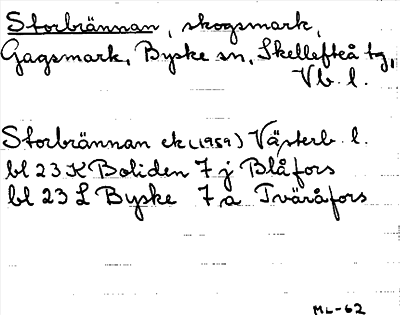 Storbrännan, skogsmark,
Gagsmark, Byske sn, Skellefteå tg,
Vb. l.
Storbrännan ek (1959) Västerb. l.
bl 23 K Boliden 7 j Blåfors
bl 23 L Byske 7 a Tväråfors
ML-62